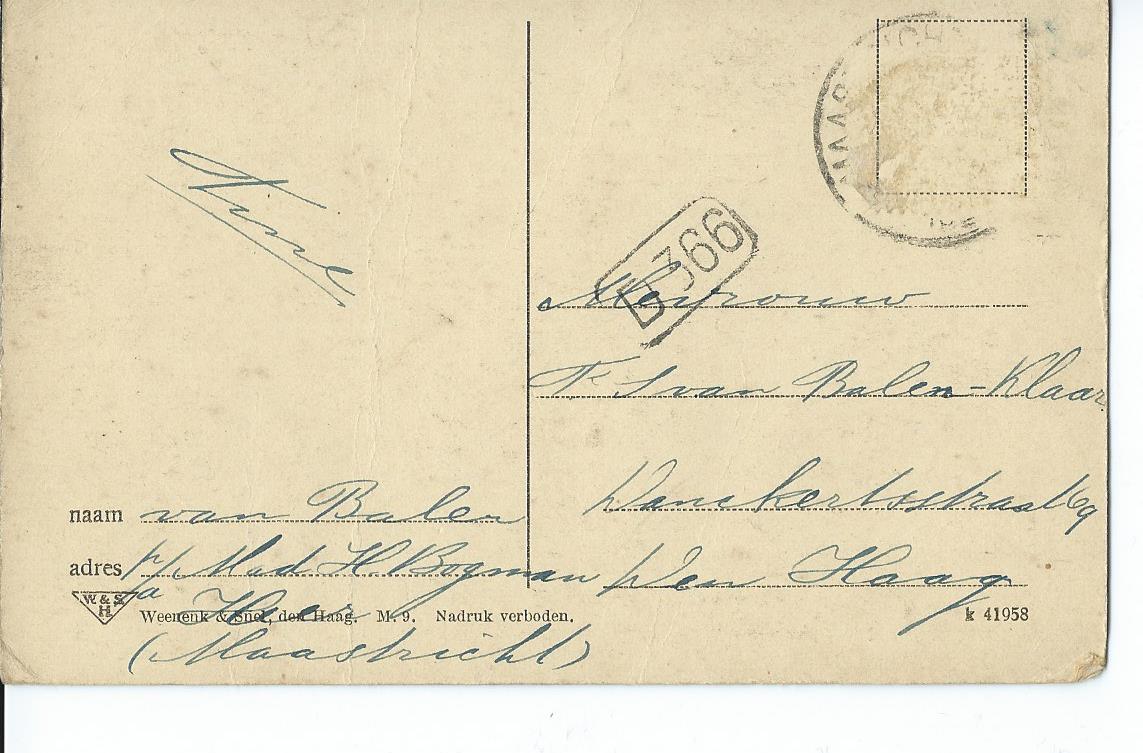 MAAS ICH
D 366
Mevrouw
F S van Balen-Klaar
Danckertsstraat 69
Den Haag
naam van Balen
adres p/a Mad H. Bogman
Heer
(Maastricht)
W & S
H
Weenenk & Snel, den Haag. M. 9. Nadruk verboden.
k 41958